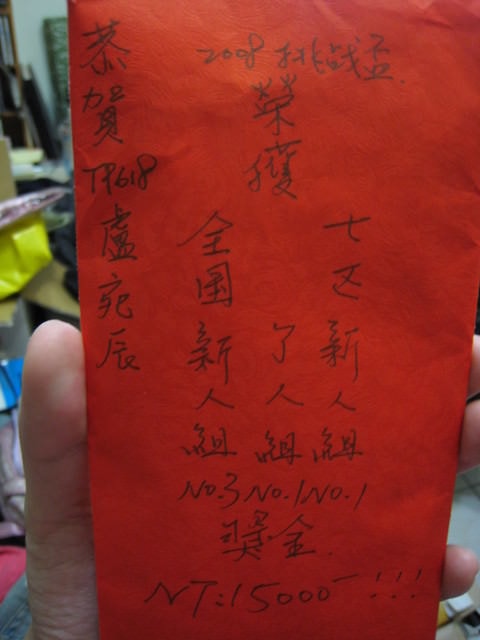 恭賀T9618盧宛辰
2008挑战盃
榮獲
七区新人組No.1
个人組No.1
全国新人組No.3
獎金
NT:15000一!!!